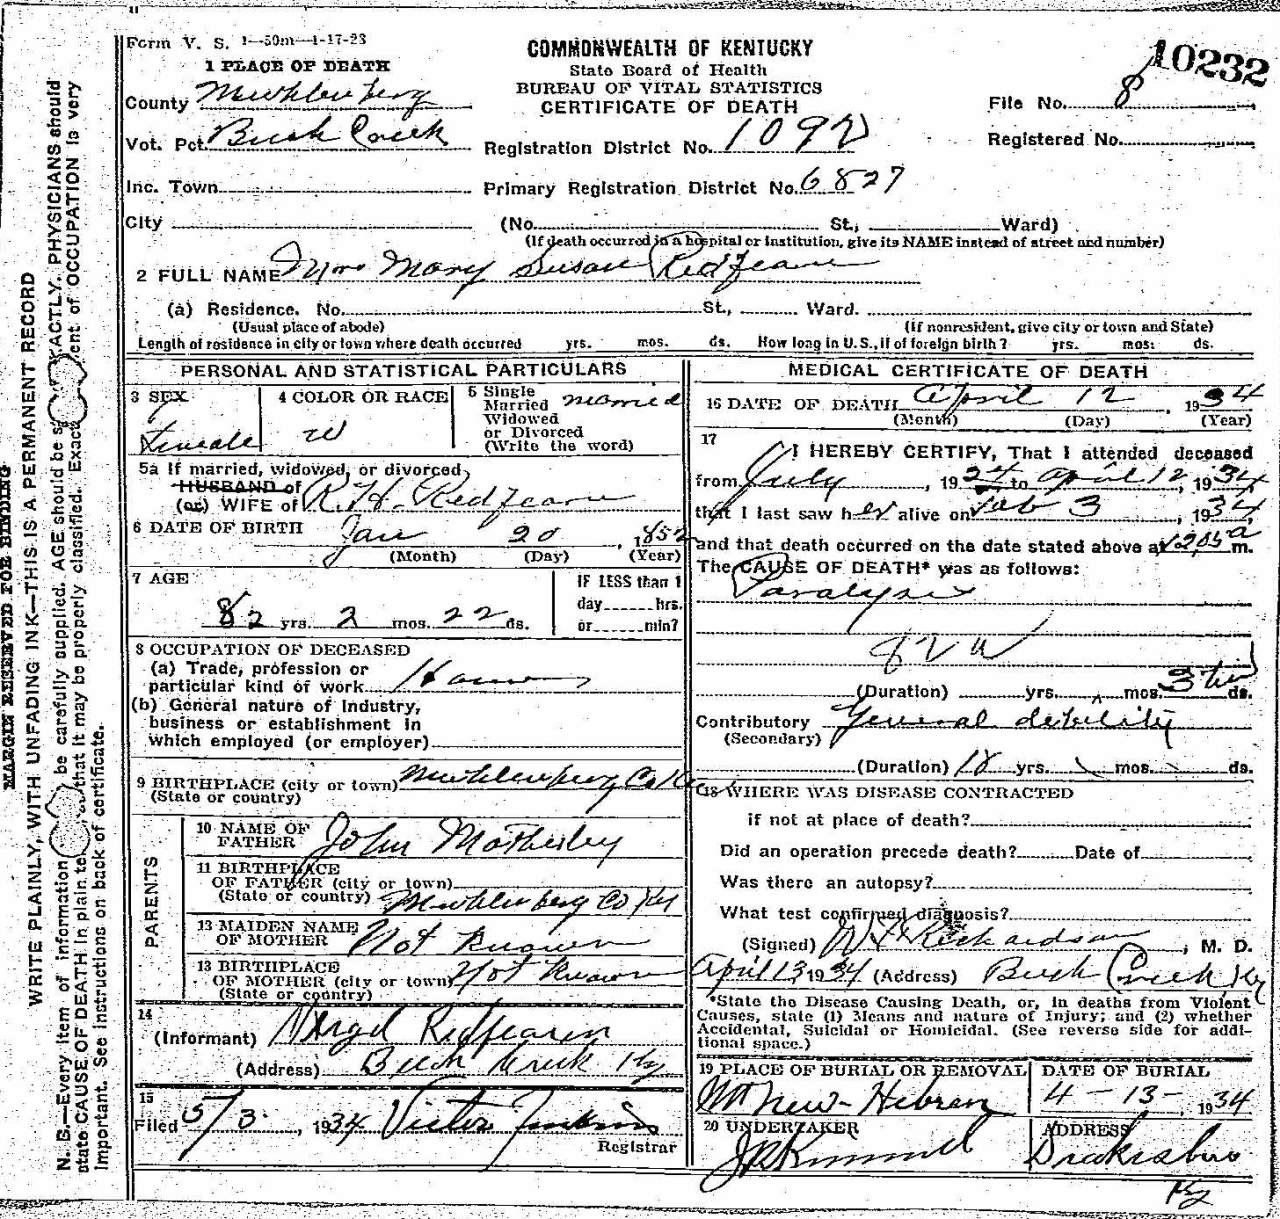 Form V. S. 1—50m—1-17-23
10232
COMMONWEALTH OF KENTUCKY
State Board of Health
BUREAU OF VITAL STATISTICS
CERTIFICATE OF DEATH
1 PLACE OF DEATH
County Muhlenberg
Vot. Pct. Beech Creek
Inc. Town
City
File No. 8
Registered No.
Registration District No. 1092
Primary Registration District No. 6827
(No. St., Ward)
(If death occurred in a hospital or institution, give its NAME instead of street and number)
2 FULL NAME Mrs Mary Susan Redfearn
(a) Residence. No. St., Ward.
(Usual place of abode) (If nonresident, give city or town and State)
Length of residence in city or town where death occurred yrs. mos. ds. How long in U.S., if of foreign birth? yrs. mos. ds.
PERSONAL AND STATISTICAL PARTICULARS
3 SEX Female
4 COLOR OR RACE W
5 Single Married Widowed or Divorced (Write the word) Married
5a If married, widowed, or divorced
HUSBAND of
(or) WIFE of R.H. Redfearn
6 DATE OF BIRTH Jan 20, 1852
(Month) (Day) (Year)
7 AGE
82 yrs. 2 mos. 22 ds.
IF LESS than 1
day hrs.
or min?
8 OCCUPATION OF DECEASED
(a) Trade, profession or
particular kind of work
(b) General nature of Industry,
business or establishment in
which employed (or employer)
9 BIRTHPLACE (city or town) Muhlenberg Co Ky
(State or country)
PARENTS
10 NAME OF
FATHER John
11 BIRTHPLACE
OF FATHER (city or town)
(State or country) Muhlenberg Co Ky
12 MAIDEN NAME
OF MOTHER Not Known
13 BIRTHPLACE
OF MOTHER (city or town) Not Known
(State or country)
14
(Informant) Redfearn
(Address) Beech Creek Ky
15
Filed 5/3, 1934 Victor
Registrar
MEDICAL CERTIFICATE OF DEATH
16 DATE OF DEATH April 12, 1934
(Month) (Day) (Year)
17
I HEREBY CERTIFY, That I attended deceased
from July, 1924 to April 12, 1934
that I last saw her alive on Feb 3, 1934
and that death occurred on the date stated above at 1205 a m.
The CAUSE OF DEATH* was as follows:
Paralysis
82 a
(Duration) yrs. mos. 3 ds.
Contributory General debility
(Secondary)
(Duration) 18 yrs. mos. ds.
18 WHERE WAS DISEASE CONTRACTED
if not at place of death?
Did an operation precede death? Date of
Was there an autopsy?
What test confirmed diagnosis?
(Signed) Richardson, M. D.
April 13 1934 (Address) Beech Creek Ky
*State the Disease Causing Death, or, in deaths from Violent
Causes, state (1) Means and nature of Injury; and (2) whether
Accidental, Suicidal or Homicidal. (See reverse side for addi-
tional space.)
19 PLACE OF BURIAL OR REMOVAL
New-Hebron
DATE OF BURIAL
4-13-, 1934
20 UNDERTAKER
Kimmel
ADDRESS
Drakesboro
Ky
MARGIN RESERVED FOR BINDING
WRITE PLAINLY, WITH UNFADING INK—THIS IS A PERMANENT RECORD
N. B.—Every item of information be carefully supplied. AGE should be EXACTLY. PHYSICIANS should
state CAUSE OF DEATH in plain that it may be properly classified. Exact of OCCUPATION is very
important. See instructions on back of certificate.